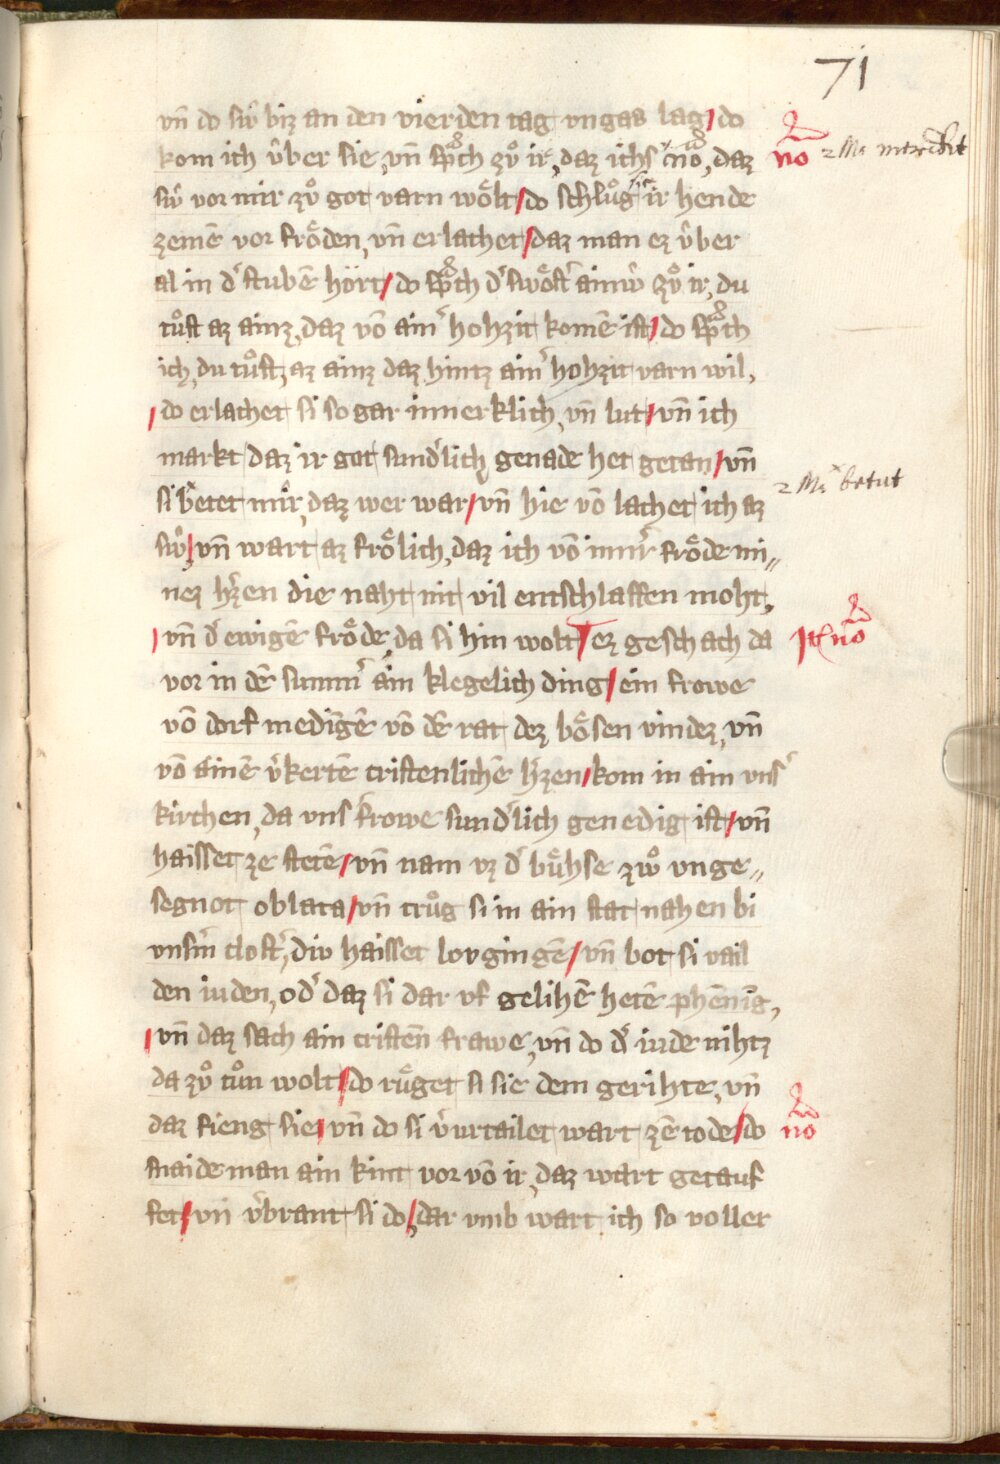 71
vn̄ do siv̂ biz an den vierden tag vngas lag / do
kom ich v̂ber sie, vn̄ sp̊ch zv̊ ir, daz ichs
nō, daz
nō
siv̂ vor mir zv̊ got varn wo̊lt / do schlůg sie ir hende
zemē vor fro̊den, vn̄ erlachet / daz man ez v̂ber
al in d' stubē hört / do sp̊ch d' swo̊st' ainiv̂ zv̊ ir, du
tůst az ainz, daz vō ain' hohzit komē ist / do sp̊ch
ich, du tůst, az ainz daz hintz ain' hohzit varn wil,
/ do erlachet si so gar innerklich, vn̄ lut / vn̄ ich
markt daz ir got sund'lich genade het getan / vn̄
si b'etet mir, daz wer war / vn̄ hie vō lachet ich az
betut
siv̂ / vn̄ wart az fro̊lich, daz ich vō inn'r fro̊de mi„
nez h'zen die naht nit vil entschlaffen moht,
/ vn̄ d' ewigē fro̊de, da si hin wolt / ez geschach da
Itē nō
vor in dē summ' ain klegelich ding / ein frowe
vō dorf medīgē vō dē rat dez bo̊sen vindez, vn̄
vō ainē v'kertē cristenlichē h'zen / kom in ain vns'
kirchen, da vns' frowe sund'lich genedig ist / vn̄
haisset ze stetē / vn̄ nam vz d' bu̇hse zwo̊ vnge„
segnot oblata / vn̄ trůg si in ain stat nahen bi
vnsm̄ clost', div haisset lovgingē / vn̄ bot si vail
den iuden, od' daz si dar vf gelihē hetē phēnig,
/ vn̄ daz sach ain cristēn frawe, vn̄ do d' iude nihtz
da zv̊ tůn wolt / do rüget si sie dem gerihte, vn̄
daz fieng sie / vn̄ do si v'urtailet wart zē tode / do
nō
snaide man ain kint vor vō ir, daz wart getauf
fet / vn̄ v'brant si do / dar vmb wart ich so voller